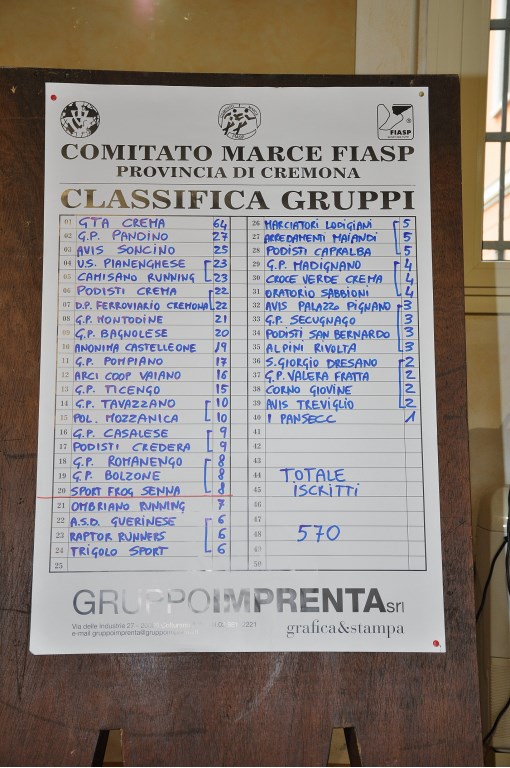 FIASP
COMITATO MARCE FIASP
PROVINCIA DI CREMONA
CLASSIFICA GRUPPI
01 GTA CREMA 64
02 G.P. PANDINO 27
03 AVIS SONCINO 25
04 U.S. PIANENGHESE 23
05 CAMISANO RUNNING 23
06 PODISTI CREMA 22
07 D.P. FERROVIARIO CREMONA 22
08 G.P. MONTODINE 21
09 G.P. BAGNOLESE 20
10 ANONIMA CASTELLEONE 19
11 G.P. POMPIANO 17
12 ARCI COOP VAIANO 16
13 G.P. TICENGO 15
14 G.P. TAVAZZANO 10
15 POL. MOZZANICA 10
16 G.P. CASALESE 9
17 PODISTI CREDERA 9
18 G.P. ROMANENGO 8
19 G.P. BOLZONE 8
20 SPORT FROG SENNA 8
21 OMBRIANO RUNNING 7
22 A.S.D. GUERINESE 6
23 RAPTOR RUNNERS 6
24 TRIGOLO SPORT 6
25
26 MARCIATORI LODIGIANI 5
27 ARREDAMENTI MAIANDI 5
28 PODISTI CAPRALBA 5
29 G.P. MADIGNANO 4
30 CROCE VERDE CREMA 4
31 ORATORIO SABBIONI 4
32 AVIS PALAZZO PIGNANO 3
33 G.P. SECUGNAGO 3
34 PODISTI SAN BERNARDO 3
35 ALPINI RIVOLTA 3
36 S. GIORGIO DRESANO 2
37 G.P. VALERA FRATTA 2
38 CORNO GIOVINE 2
39 AVIS TREVIGLIO 2
40 I PANSECC 1
41
42
43
44 TOTALE
45 ISCRITTI
46
47
48 570
49
50
GRUPPOIMPRENTAsrl
Via delle Industrie 27 -
e-mail gruppoimprenta@
grafica&stampa